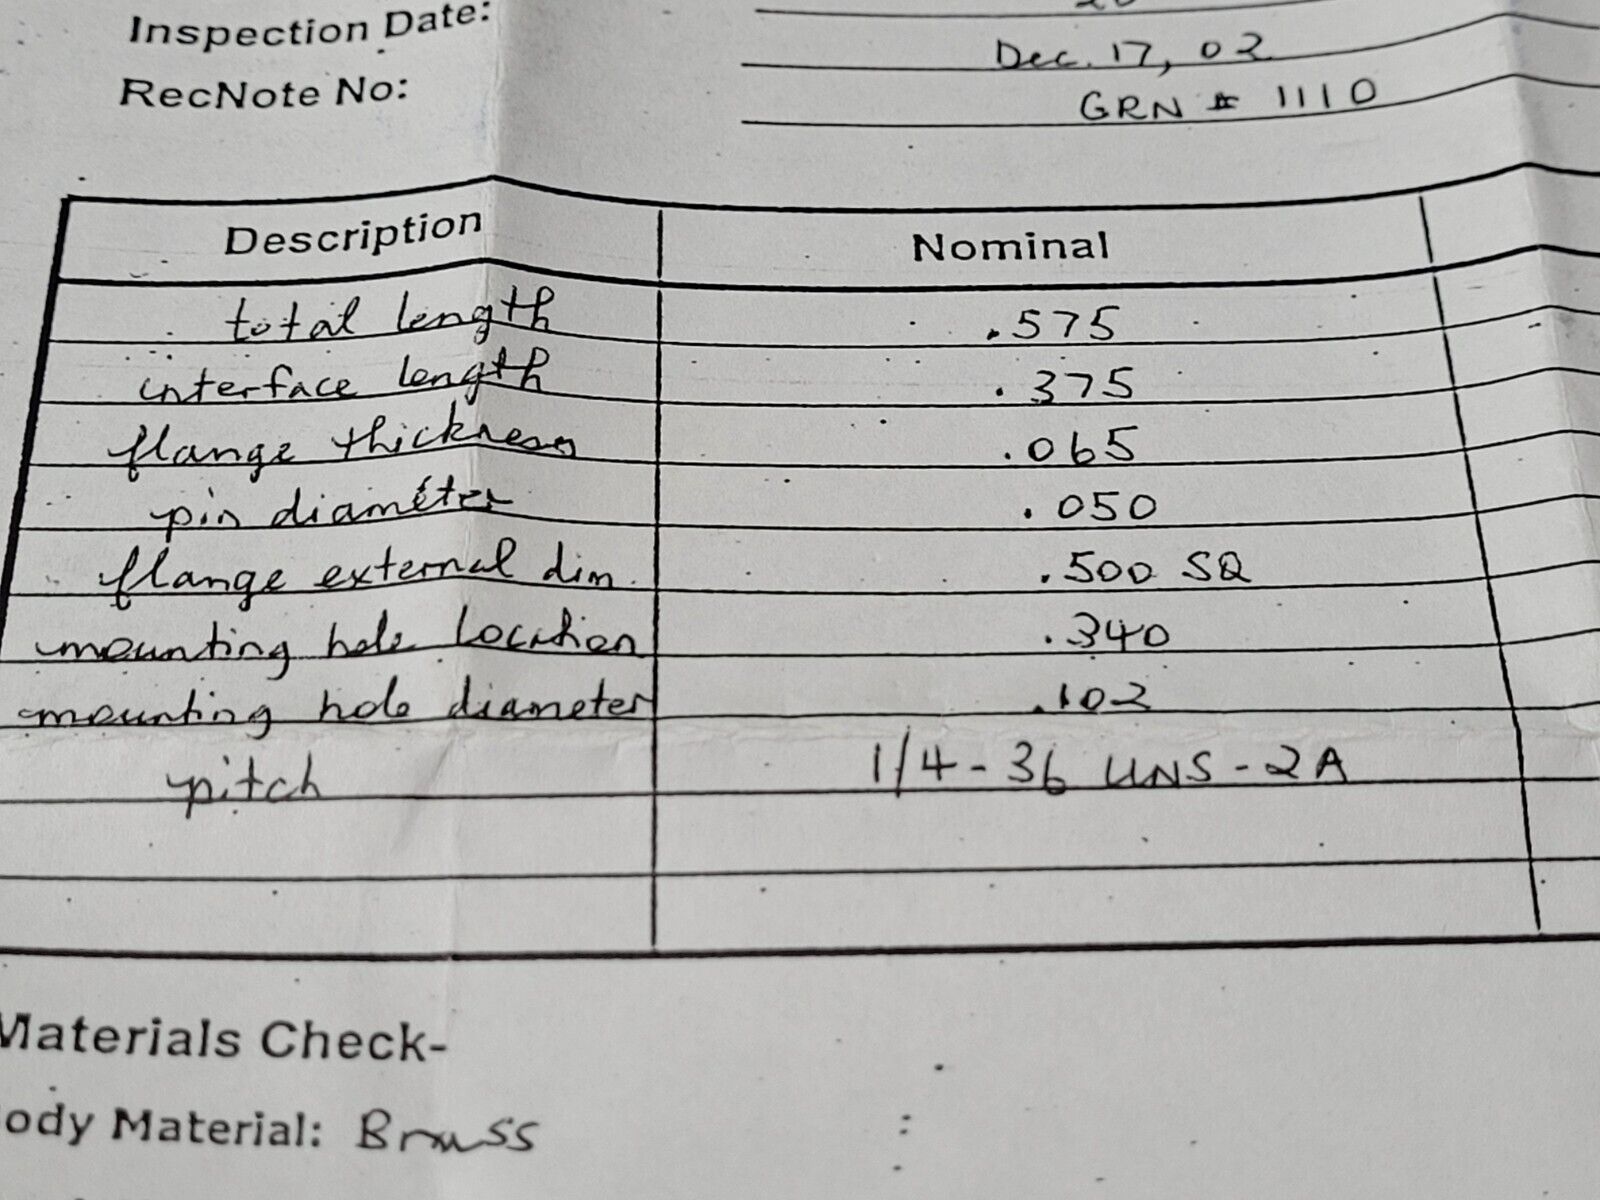 Inspection Date: Dec. 17, 02
RecNote No: GRN # 1110
Description Nominal
total length .575
interface length .375
flange thickness .065
pin diameter .050
flange external dim. .500 SQ
mounting hole location .340
mounting hole diameter .102
pitch 1/4-36 UNS-2A
Materials Check-
ody Material: Brass